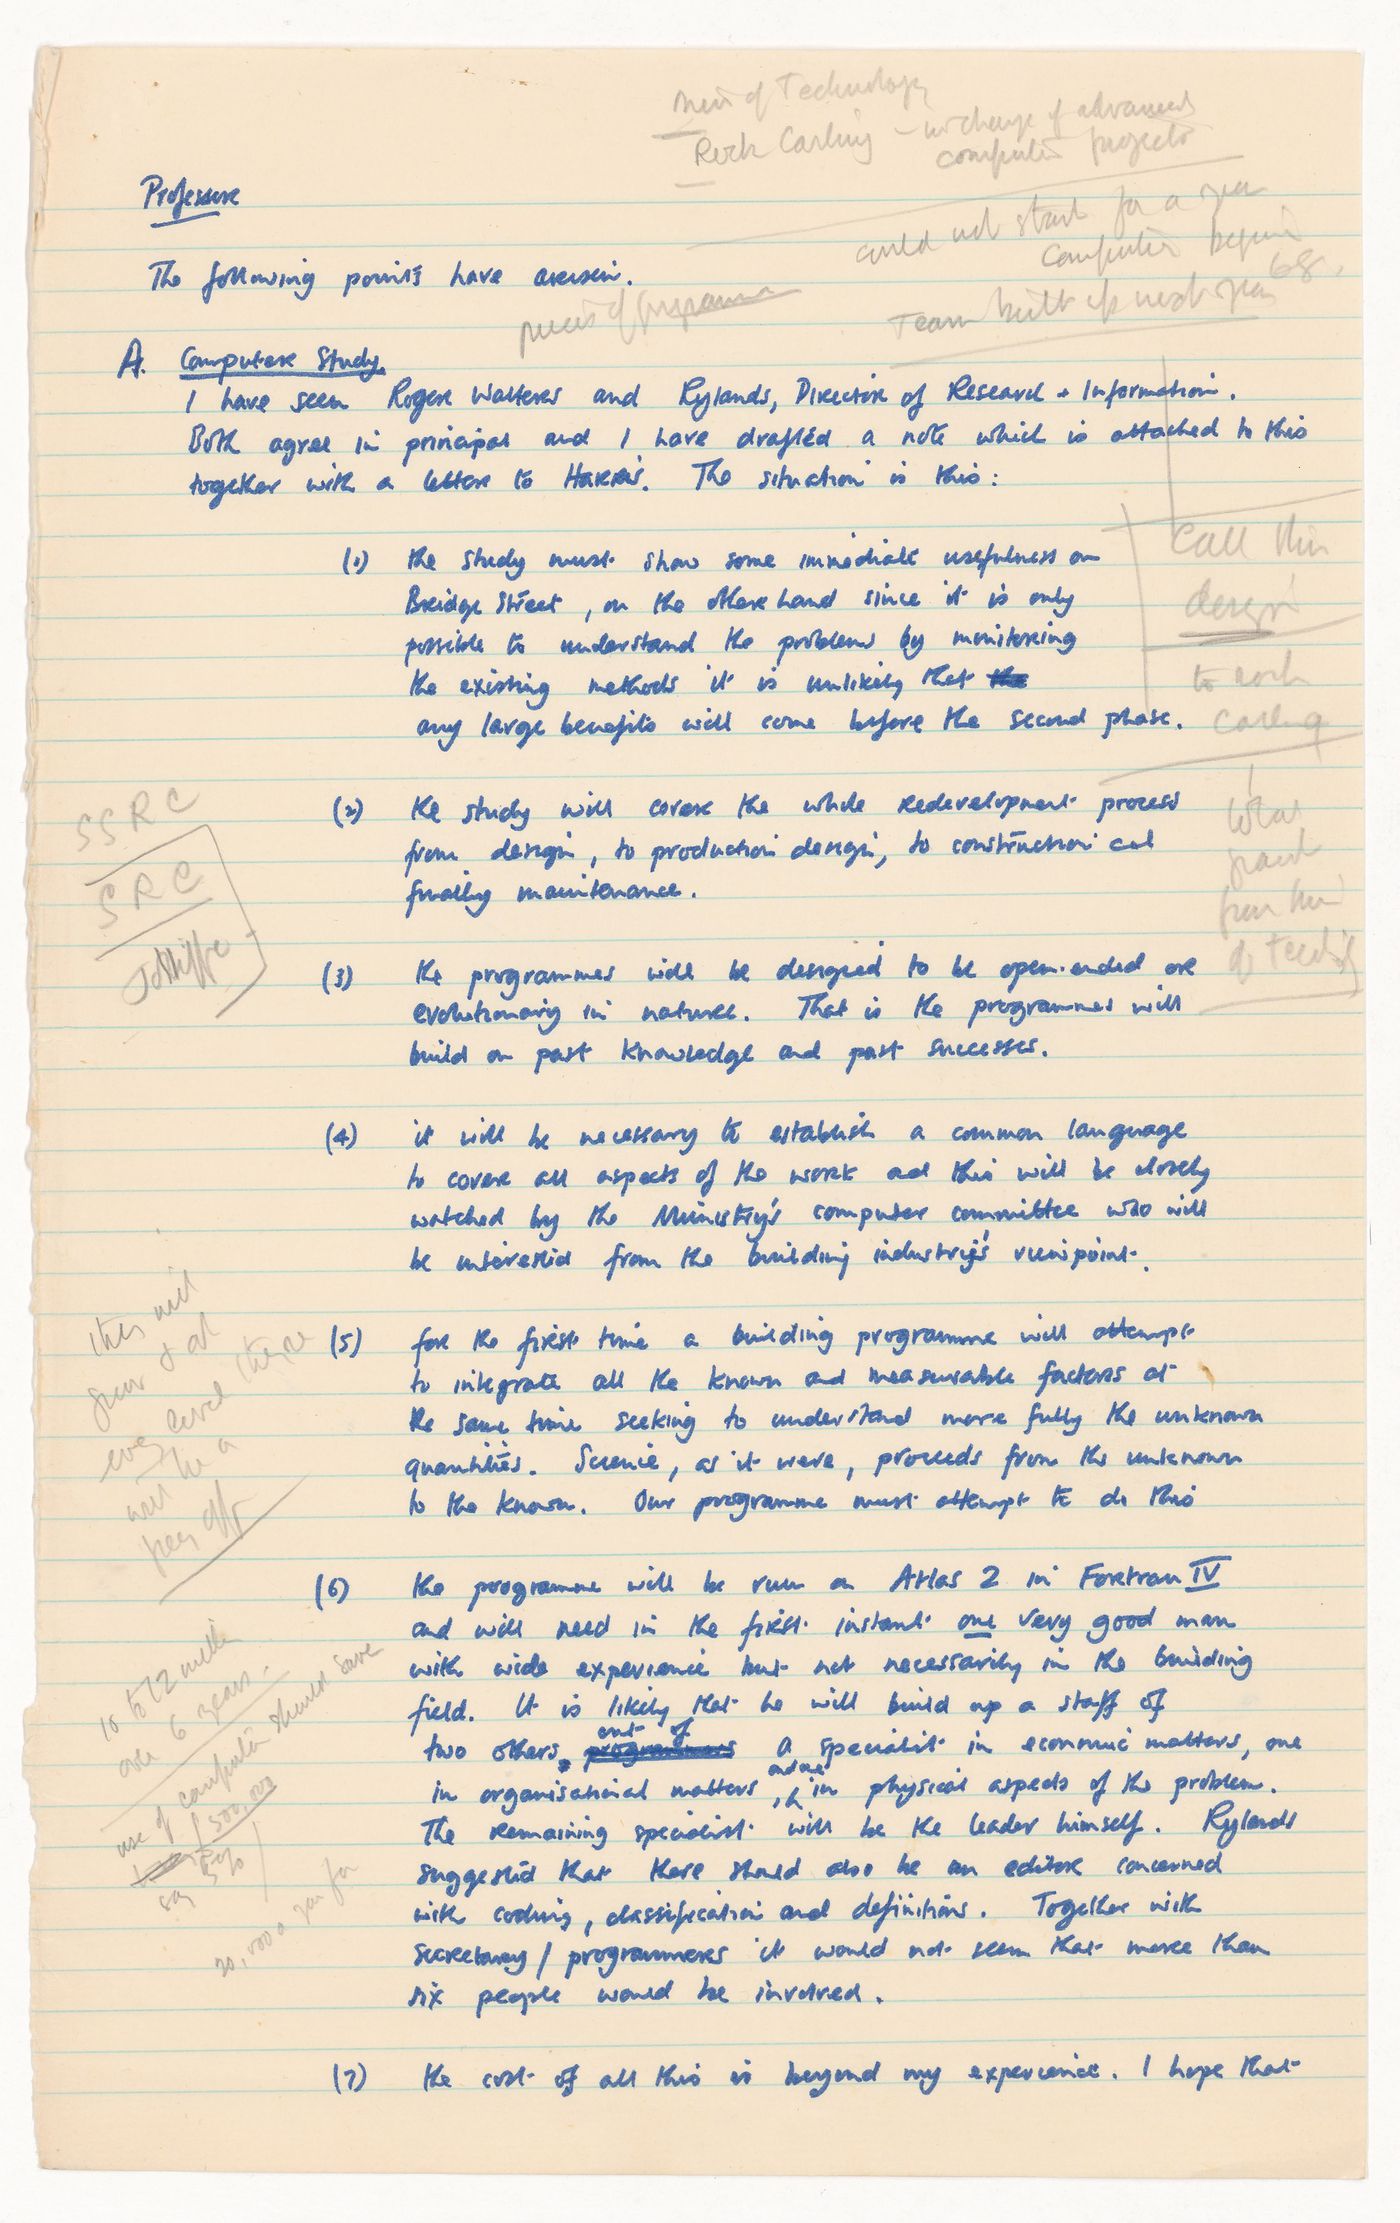 Min of Technology
Rock Carling – in charge of advanced
computer projects
Professor
could not start for a year
computer begun
68.
The following points have arisen.
pieces of programme
Team built up next year
A. Computer Study.
I have seen Roger Walters and Rylands, Director of Research + Information.
Both agree in principal and I have drafted a note which is attached to this
together with a letter to Harris. The situation is this:
(1) the study must show some immediate usefulness on
Bridge Street, on the other hand since it is only
possible to understand the problems by monitoring
the existing methods it is unlikely that the
any large benefits will come before the second phase.
Call this
design
to each
Carling
(2) the study will cover the whole redevelopment process
from design, to production design, to construction and
finally maintenance.
SSRC
SRC
Jolliffe
What
grant
from him
of Tech
(3) the programmes will be designed to be open-ended or
evolutionary in nature. That is the programmes will
build on past knowledge and past successes.
(4) it will be necessary to establish a common language
to cover all aspects of the work and this will be closely
watched by the Ministry's computer committee who will
be interested from the building industry's viewpoint.
(5) for the first time a building programme will attempt
to integrate all the known and measurable factors at
the same time seeking to understand more fully the unknown
quantities. Science, as it were, proceeds from the unknown
to the known. Our programme must attempt to do this
at
every level there
will be a
pay off
(6) the programme will be run on Atlas 2 in Fortran IV
and will need in the first instant one very good man
with wide experience but not necessarily in the building
field. It is likely that he will build up a staff of
two others, programmers out of a specialist in economic matters, one
in organisational matters, and one in physical aspects of the problem.
The remaining specialist will be the leader himself. Rylands
suggested that there should also be an editor concerned
with coding, classification and definitions. Together with
secretary / programmers it would not seem that more than
six people would be involved.
10 to 12 million
over 6 years.
use of computer should save
£500,000
say 5%
20,000 a year for
(7) the cost of all this is beyond my experience. I hope that